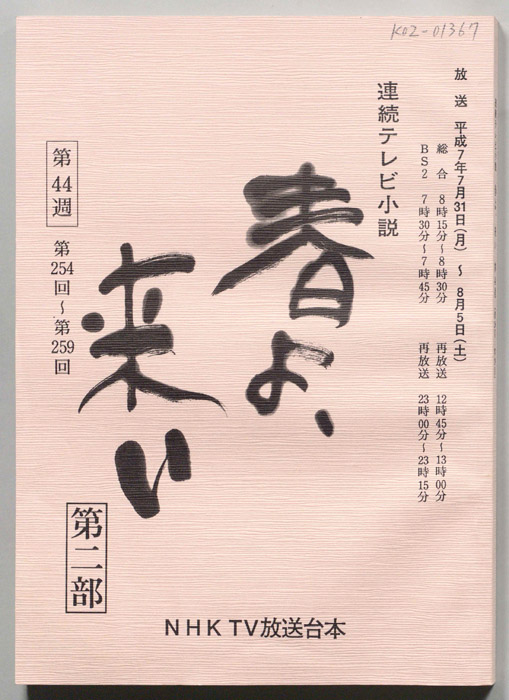 K02-01367
放送 平成7年7月31日(月) ～ 8月5日(土)
総合 8時15分～8時30分 再放送 12時45分～13時00分
BS2 7時30分～7時45分 再放送 23時00分～23時15分
連続テレビ小説
春よ、
来い
第44週
第254回～第259回
第二部
NHK TV放送台本